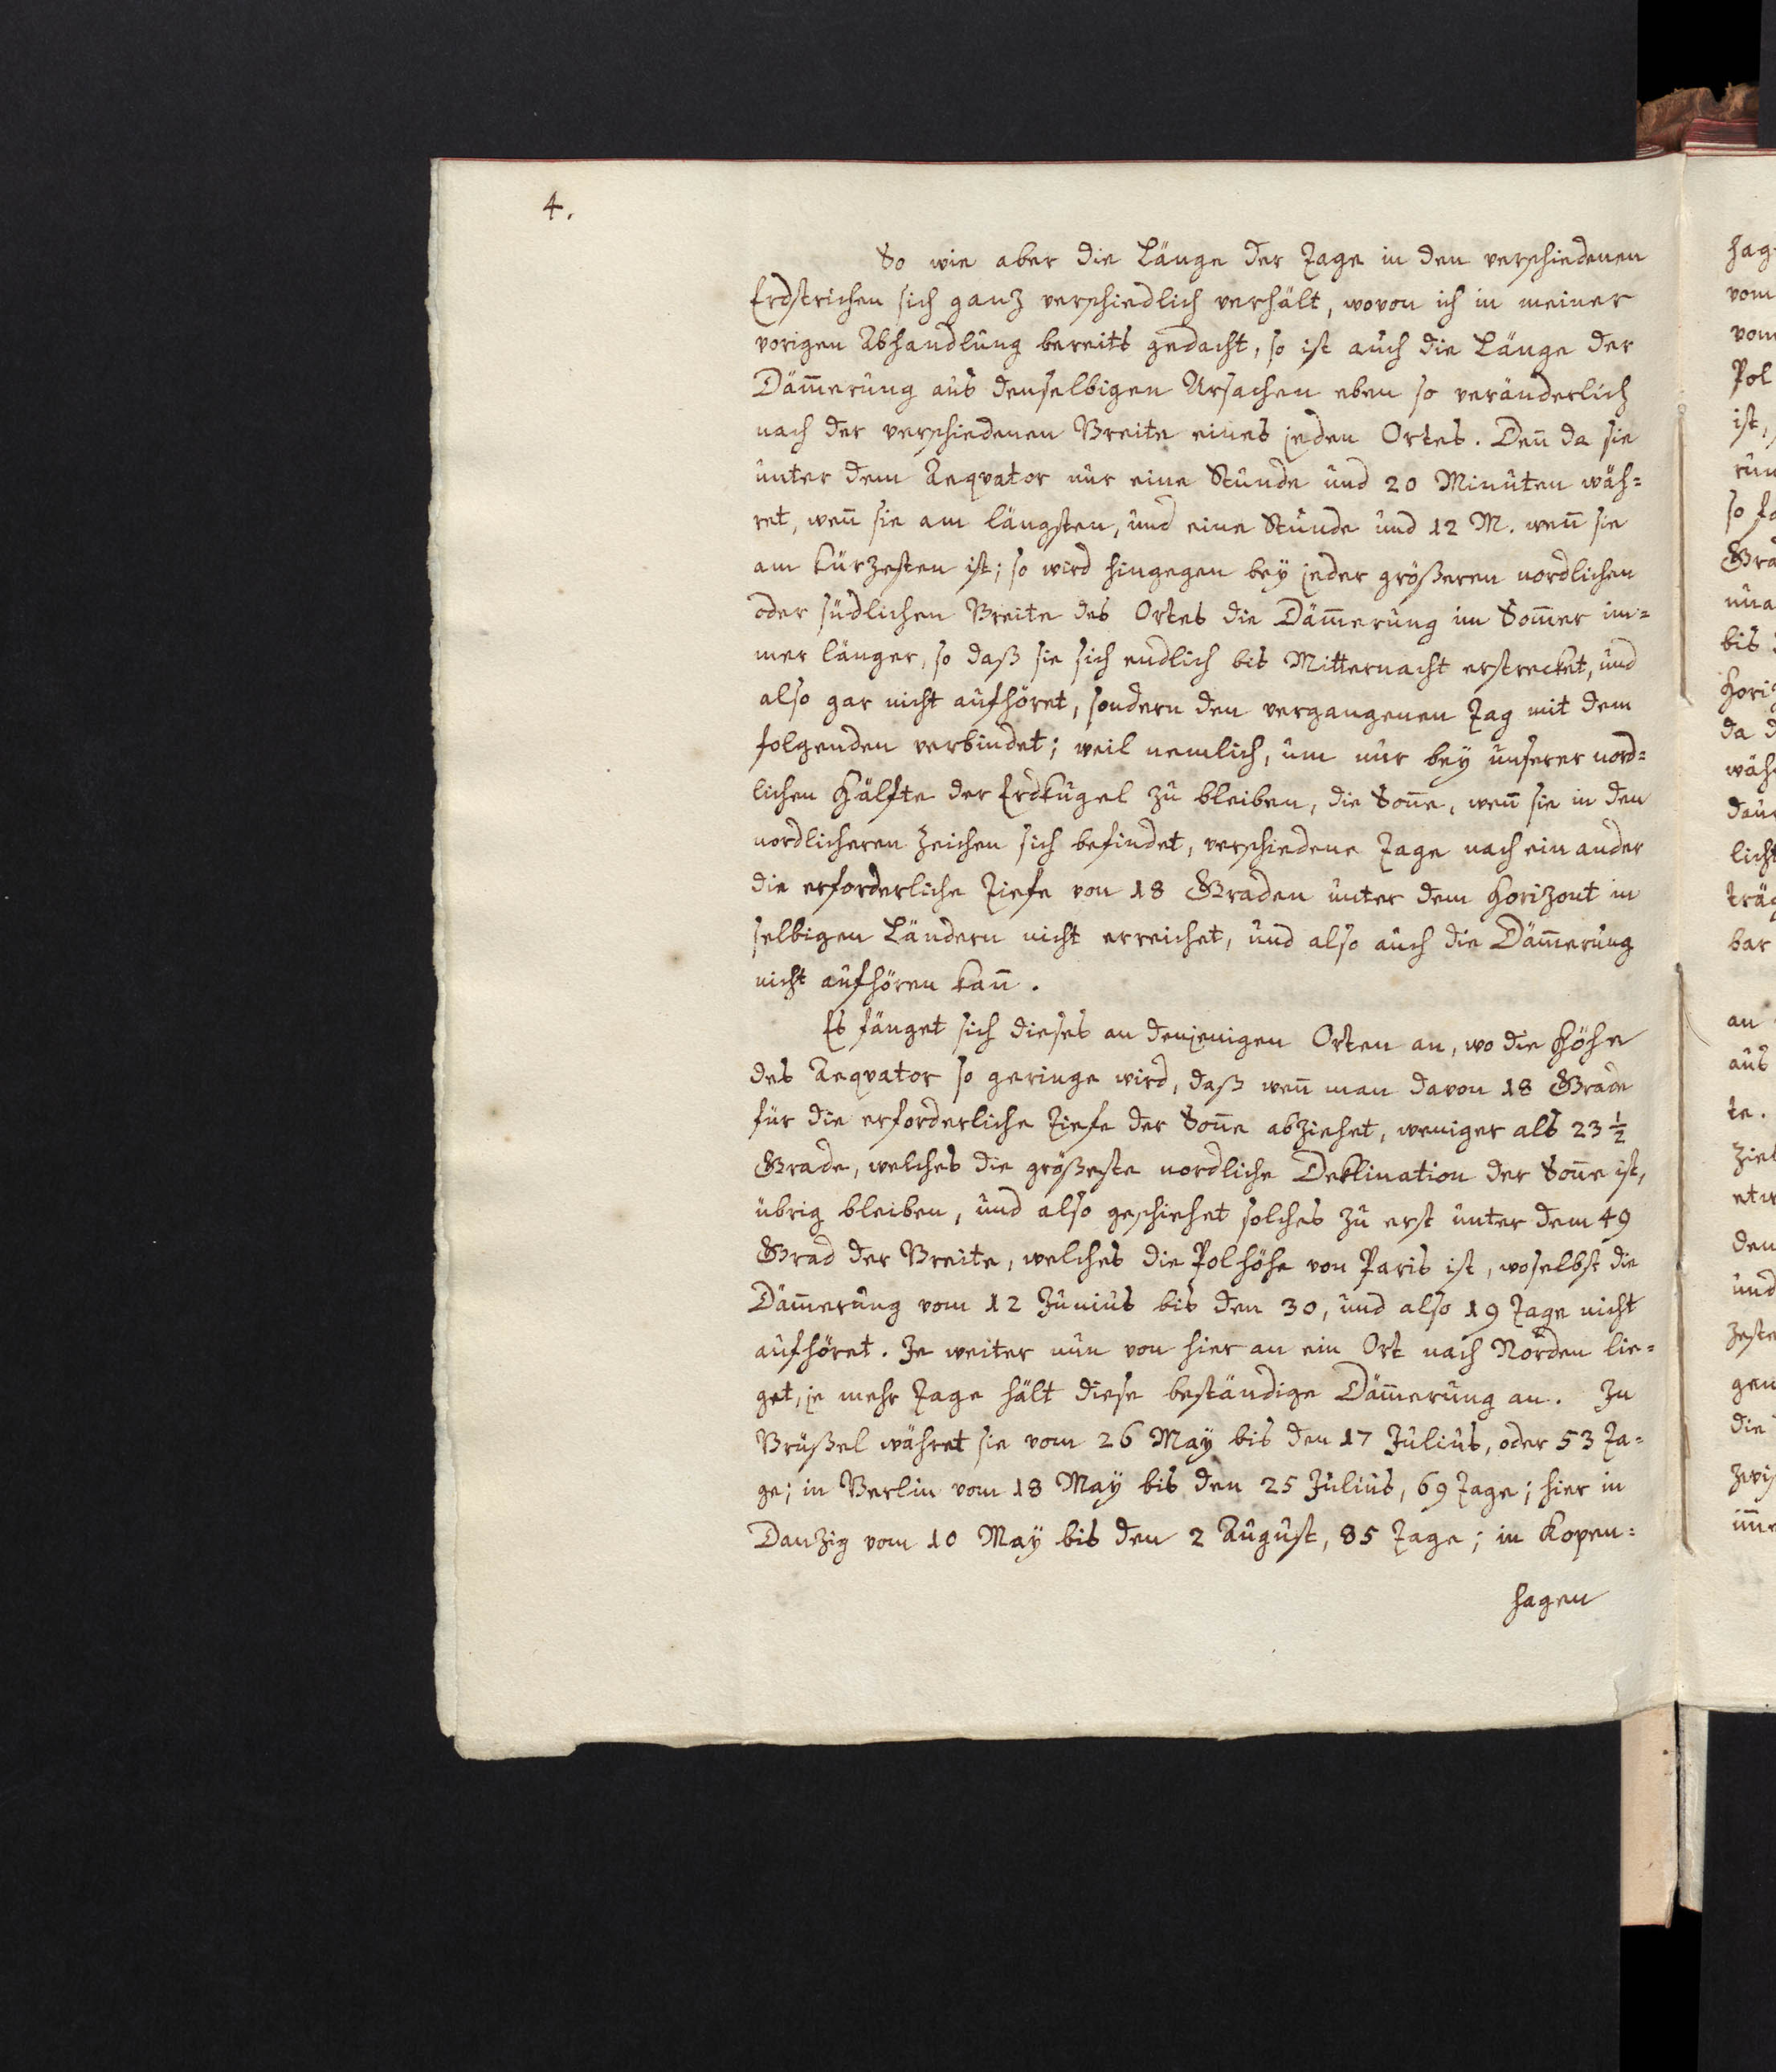 4.
So wie aber die Länge der Tage in den verschiedenen
Erdstrichen sich ganz verschiedlich verhält, wovon ich in meiner
vorigen Abhandlung bereits gedacht, so ist auch die Länge der
Däm̄erung aus denselbigen Ursachen eben so veränderlich
nach der verschiedenen Breite eines jeden Ortes. Den̄ da sie
unter dem Aeqvator nur eine Stunde und 20 Minuten wäh=
ret, wen̄ sie am längsten, und eine Stunde und 12 M. wen̄ sie
am kürzesten ist; so wird hingegen beÿ jeder größeren nordlichen
oder südlichen Breite des Ortes die Däm̄erung im Som̄er im=
mer länger, so daß sie sich endlich bis Mitternacht erstrecket, und
also gar nicht aufhöret, sondern den vergangenen Tag mit dem
folgenden verbindet; weil nemlich, um nur beÿ unserer nord=
lichen Hälfte der Erdkugel zu bleiben, die Son̄e, wen̄ sie in den
nordlicheren Zeichen sich befindet, verschiedene Tage nach ein ander
die erforderliche Tiefe von 18 Graden unter dem Horizont in
selbigen Ländern nicht erreichet, und also auch die Däm̄erung
nicht aufhören kan̄.
Es fänget sich dieses an denjenigen Orten an, wo die Höhe
des Aeqvator so geringe wird, daß wen̄ man davon 18 Grade
für die erforderliche Tiefe der Son̄e abziehet, weniger als 23 ½
Grade, welches die größeste nordliche Deklination der Son̄e ist,
übrig bleiben, und also geschiehet solches zu erst unter dem 49
Grad der Breite, welches die Polhöhe von Paris ist, woselbst die
Däm̄erung vom 12 Junius bis den 30, und also 19 Tage nicht
aufhöret. Je weiter nun von hier an ein Ort nach Norden lie=
get, je mehr Tage hält diese beständige Däm̄erung an. In
Brüßel währet sie vom 26 Maÿ bis den 17 Julius, oder 53 Ta=
ge; in Berlin vom 18 May bis den 25 Julius, 69 Tage; hier in
Danzig vom 10 Maÿ bis den 2 August, 85 Tage; in Kopen=
hagen